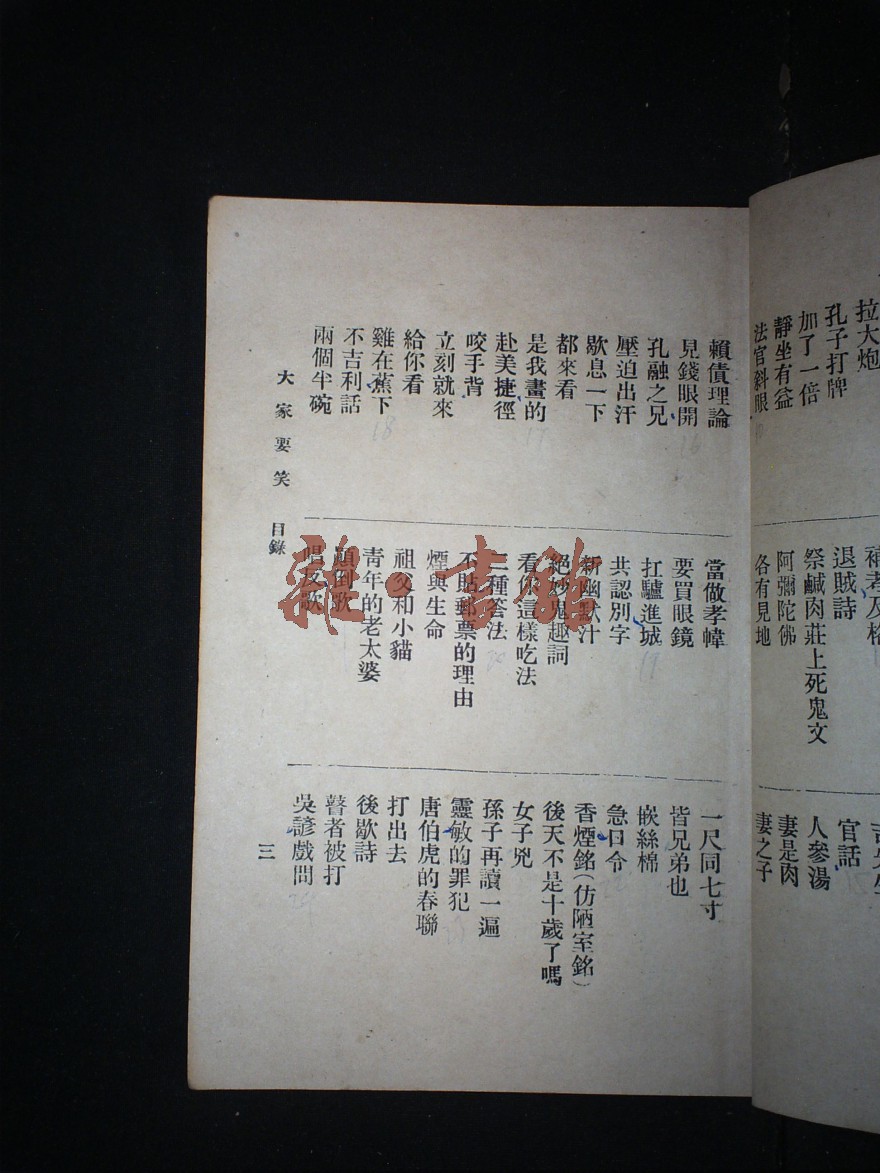 拉大炮
孔子打牌
加了一倍
靜坐有益
法官斜眼
退賊詩
祭鹹肉莊上死鬼文
阿彌陀佛
各有見地
官話
人參湯
妻是肉
妻之子
賴債理論
見錢眼開
孔融之兄
壓迫出汗
歇息一下
都來看
是我畫的
赴美捷徑
咬手背
立刻就來
給你看
雞在蕉下
不吉利話
兩個半碗
當做孝幃
要買眼鏡
扛驢進城
共認別字
新幽默汁
絕妙鬼趣詞
看你這樣吃法
二種答法
不貼郵票的理由
煙與生命
祖父和小貓
青年的老太婆
顛倒歌
唱反歌
一尺同七寸
皆兄弟也
嵌絲棉
急口令
香煙銘(仿陋室銘)
後天不是十歲了嗎
女子兇
孫子再讀一遍
靈敏的罪犯
唐伯虎的春聯
打出去
後歇詩
瞽者被打
吳諺戲問
大家要笑 目錄
三
雜·書館
16
17
18
19
20